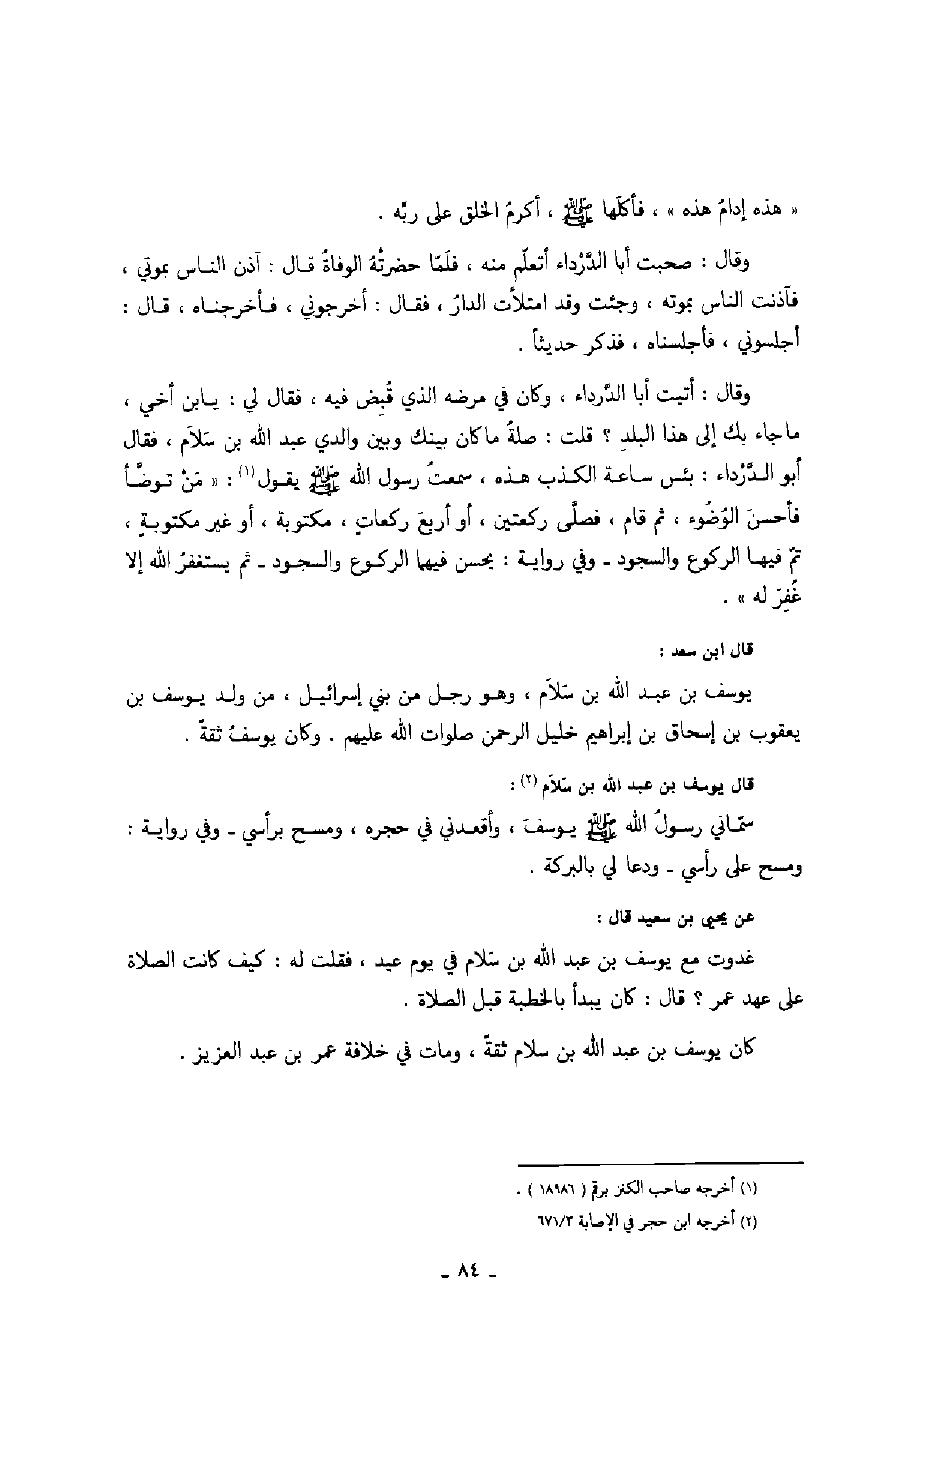 « هذه إدامُ هذه » ، فأكلَها ﷺ ، أكرمُ الخلق على ربِّه .
وقال : صحبت أبا الدَّرْداء أتعلّم منه ، فلَمّا حضرتْهُ الوفاةُ قال : آذن الناس بموتي ،
فآذنت الناس بموته ، وجئت وقد امتلأت الدارُ ، فقال : أخرجوني ، فأخرجناه ، قال :
أجلسوني ، فأجلسناه ، فذكر حديثاً .
وقال : أتيت أبا الدَّرداء ، وكان في مرضه الذي قُبِض فيه ، فقال لي : يابن أخي ،
ماجاء بك إلى هذا البلدِ ؟ قلت : صلةُ ماكان بينك وبين والدي عبد الله بن سَلاَم ، فقال
أبو الدَّرْداء : بئس ساعة الكذب هذه ، سمعتُ رسول الله ﷺ يقول(١) : « مَنْ توضَّأ
فأحسنَ الوُضُوء ، ثم قام ، فصلَّى ركعتين ، أو أربعَ ركعاتٍ ، مكتوبة ، أو غير مكتوبةٍ ،
تمّ فيها الركوع والسجود - وفي رواية : يحسن فيها الركوع والسجود - ثم يستغفرُ الله إلا
غُفِرَ له » .
قال ابن سعد :
يوسف بن عبد الله بن سَلاَم ، وهو رجل من بني إسرائيل ، من ولد يوسف بن
يعقوب بن إسحاق بن إبراهيم خليل الرحمن صلوات الله عليهم . وكان يوسفُ ثقةً .
قال يوسف بن عبد الله بن سَلاَم(٢) :
سمّاني رسولُ الله ﷺ يوسفَ ، وأقعدني في حجره ، ومسح برأسي - وفي رواية :
ومسح على رأسي - ودعا لي بالبركة .
عن يحيى بن سعيد قال :
غدوت مع يوسف بن عبد الله بن سَلام في يوم عيد ، فقلت له : كيف كانت الصلاة
على عهد عمر ؟ قال : كان يبدأ بالخطبة قبل الصلاة .
كان يوسف بن عبد الله بن سلام ثقةً ، ومات في خلافة عمر بن عبد العزيز .
(١) أخرجه صاحب الكنز برقم ( ١٨٩٨٦ ) .
(٢) أخرجه ابن حجر في الإصابة ٦٧١/٣
- ٨٤ -